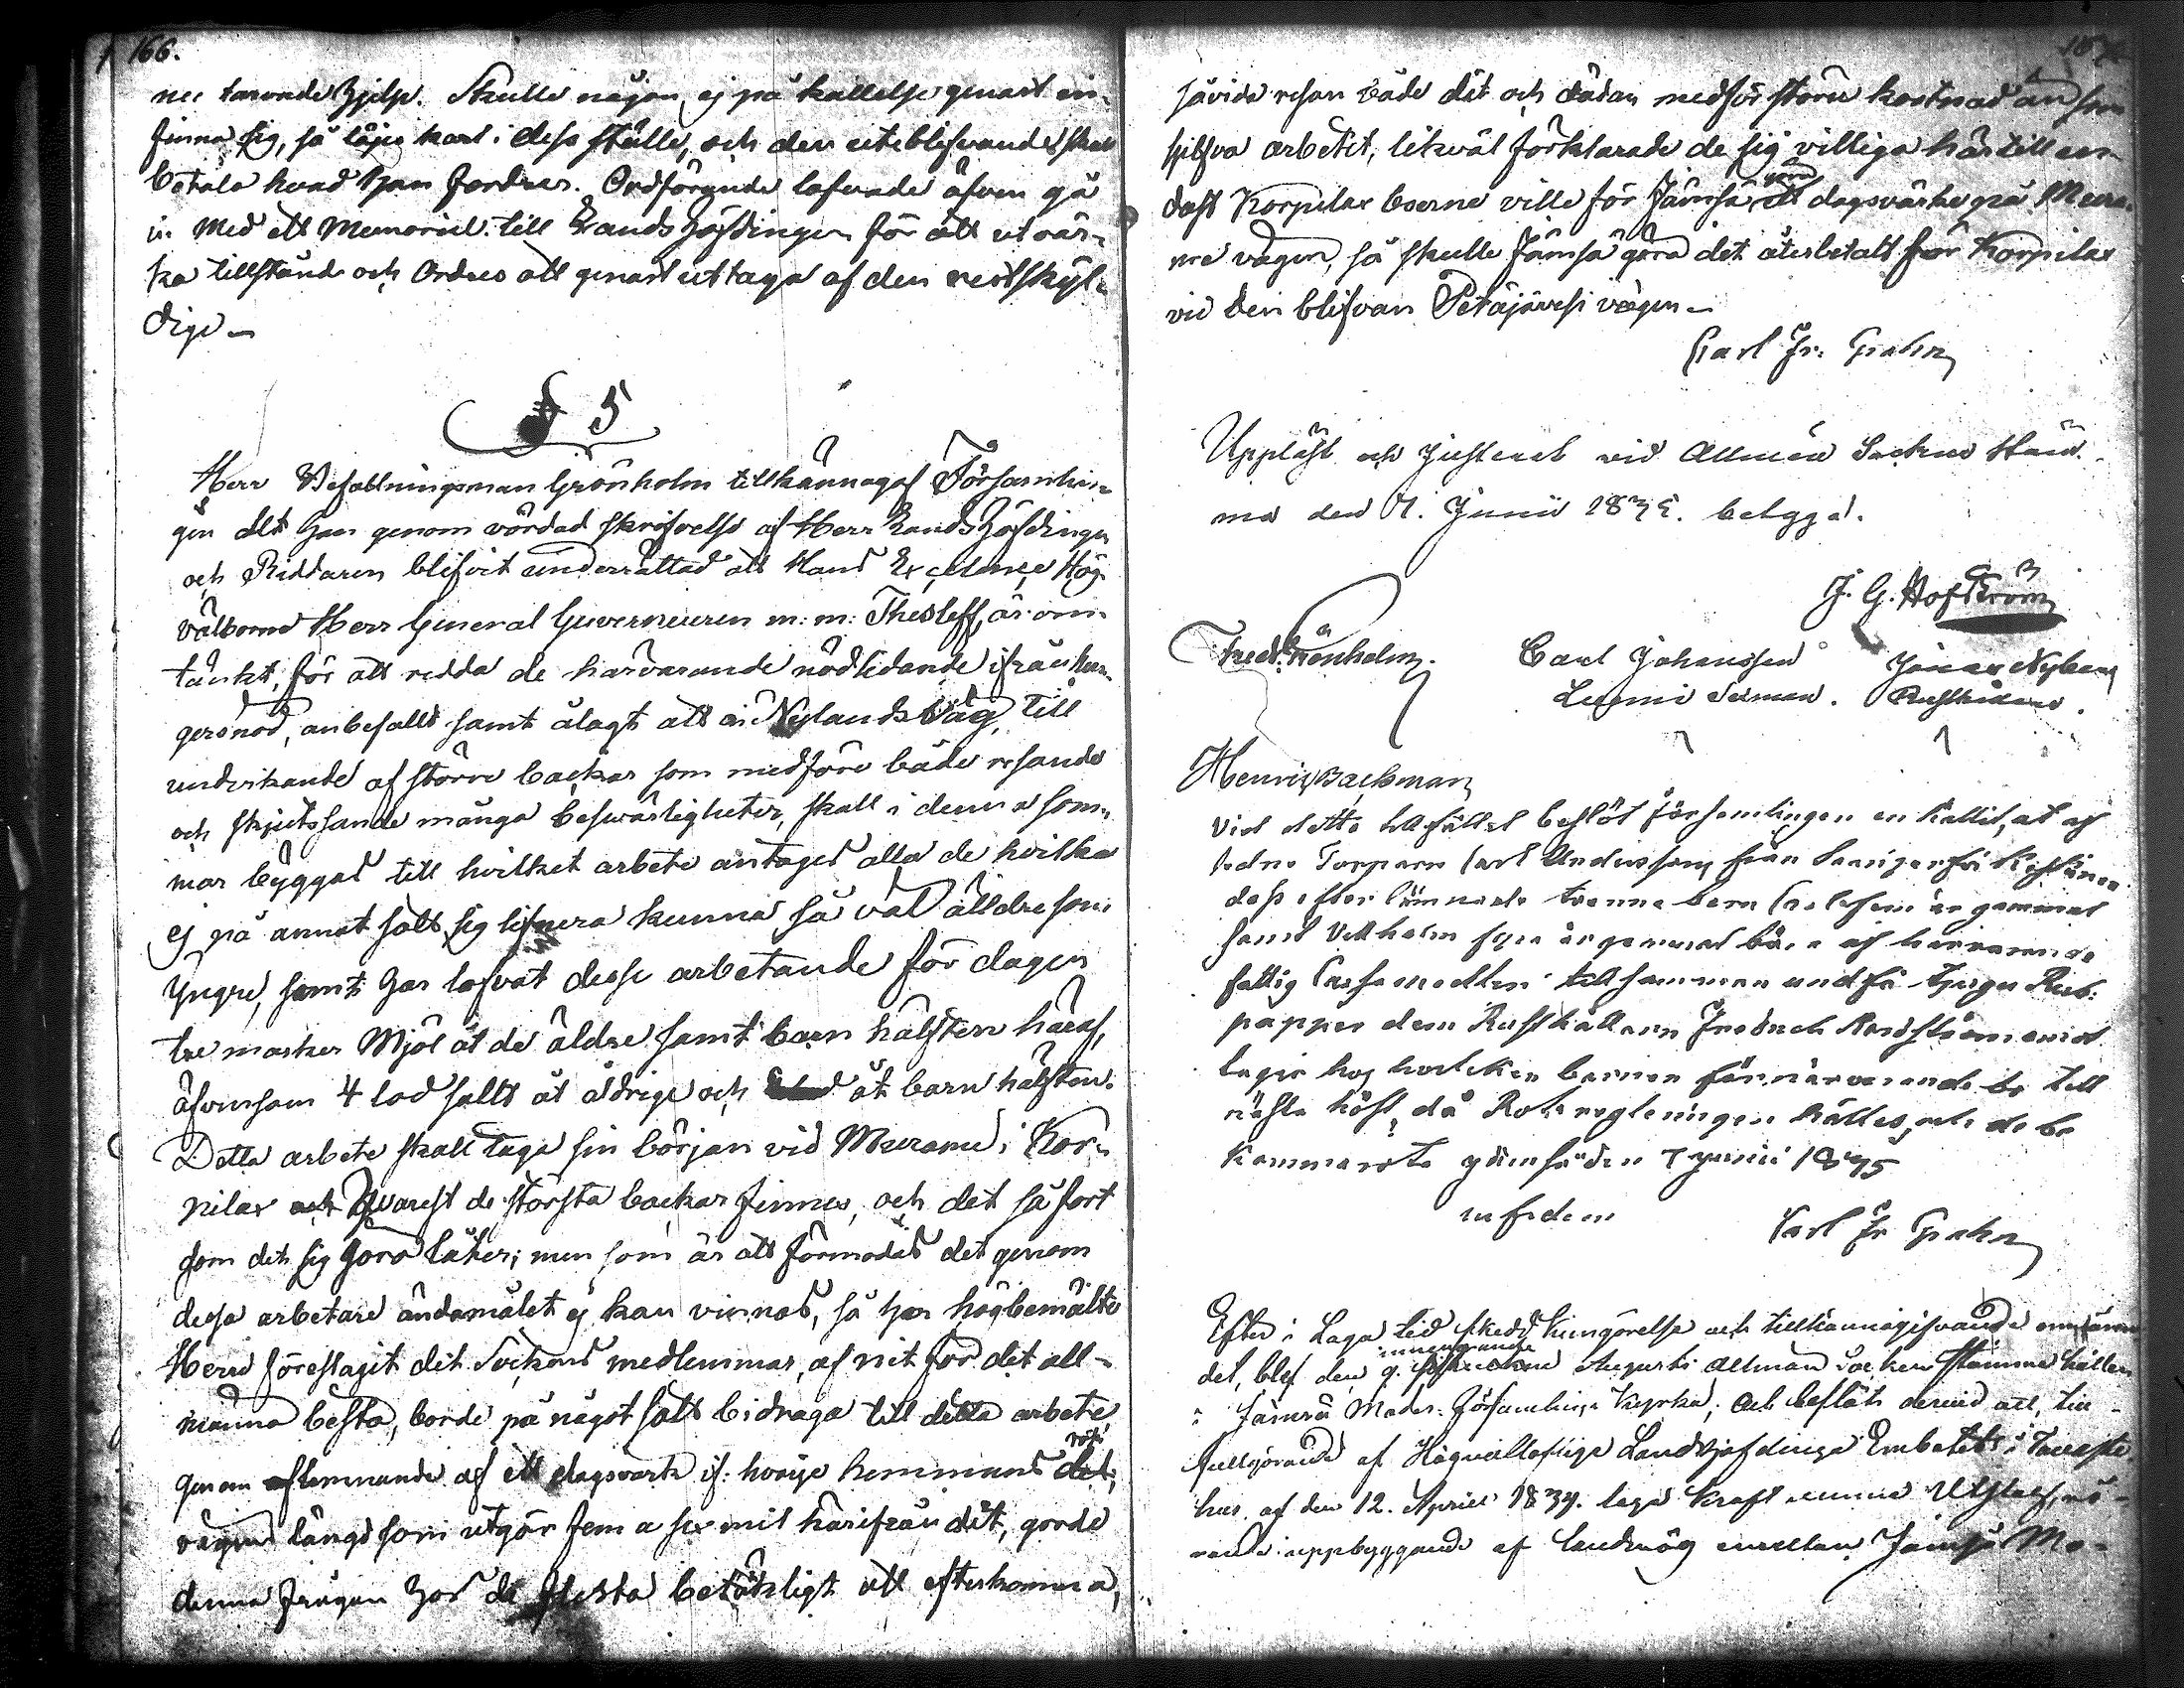 166.
ner tarvade hjelp. Skulle någon ej på kallelse genast in-
finna sig, så läjes karl i dess ställe, och den utebliffvande skall
betala hvad han fordrar. Ordförande lofvade äfven gå
in med ett Memorial till Lands Höfdingen för att utvär-
ka tillstånd och Ordres att genast uttaga af den restskyl-
dige –
§ 5
Herr Befallningsman Grönholm tillkännagaf Församlin-
gen att han genom vördad skrifvelse af Herr Lands Höfdingen
och Riddaren blifvit underrättad att Hans Excellence Hög-
välborne Herr General Guverneuren m: m: Thesleff, är om-
tänkt, för att redda de härvarande nödlidande ifrån hun-
gersnöd, anbefallt samt ålagt att en Nylands Väg, till
undvikande af större backar som medföre både resande
och skjutssande många besvärligheter, skall i denna som-
mar byggas till hvilket arbete antages alla de hvilka
ej på annat sätt sig lifnära kunna så väl älldre som
Yngre, samt har lofvat dessa arbetande för dagen
tre marker Mjöl åt de äldre samt barn hälften häraf,
äfvensom 4 lod sallt åt äldrige och åt barn hälften.
Detta arbete skall taga sin början vid Murame i Kor-
pilax hvarest de största backar finnes, och det så fort
som det sig göra låter; men som är att förmodas det genom
dessa arbetare ändamålet ej kan vinnas, så har högbemälte
Herre föreslagit det Sockens medlemmar, af nit för det all-
männa bästa, borde på något sätt bidraga till detta arbete
genom aflemnande af ett dagsverk if: hvarje hemmans
vägens längd som utgör fem a sex mil härifrån dit, gorde
denna frågan hos de flesta betänkligt att efterkomma,
såvida resan både dit och dädan medför större kostnad än som
sjelfva arbetet, likväl förklarade de sig villiga härtill en-
dast Korpilax boerne ville för Jämsä göra ett dagsvärke på Mura-
me vägen, så skulle Jämsä göra det återbetalt för Korpilax
vid den blifvan Petäjävesi vägen –
Carl Fr: Grahn
Uppläst och Justerat vid Allmän Sockne Stäm-
ma den 7. Junii 1835. betygga.
J. G. Hofström
Fredr. Grönholm. Carl Johansson Jonas Nyberg
Luomi Seiman. Rusthållare.
Henric Backman
Vid detta tillfället beslöt församlingen enhällit, at af
Torparn Carl Andersson från
dess efterlämnade tvenne barn år gammal
samt Vilhelm fyra år gammal af härvarande
fattig Cassa medlen tillsamman undfå tjugu Rub:
papper dem Rusthållarn Fredrich Nordström emot
tagir hos hvilken barnen för närvarande bo till
nästa höst, då Rote regleringen hålles, och de be
Kommo rote Jämsä den 7 junii 1835
in fidem Carl Fr Grahn
Efter i Laga tid skedd Kungörelse och tillkännagifvande om ämne
det, blef den 9. innevarande Augusti Allmän Socken Stämma hållen
i Jämsä Moder-Församlings Kyrka; och beslöts dervid att, till
fullgörande af Högvällofliga Landshöfdinge Embetets i Tavaste-
hus af den 12. April 1834. laga Kraft vunne Utslag, rö-
rande uppbyggande af landsväg emellan Jämsä Mo-